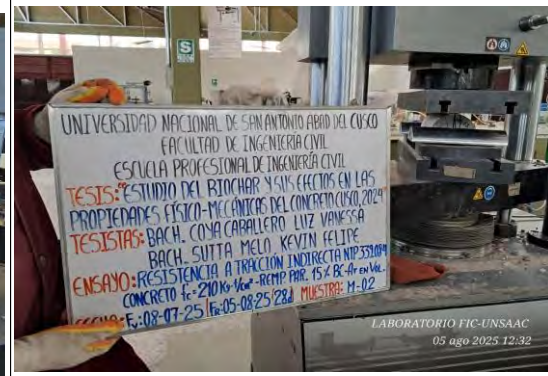 UNIVERSIDAD NACIONAL DE SAN ANTONIO ABAD DEL CUSCO
FACULTAD DE INGENIERÍA CIVIL
ESCUELA PROFESIONAL DE INGENIERÍA CIVIL
TESIS: "ESTUDIO DEL BIOCHAR Y SUS EFECTOS EN LAS
PROPIEDADES FÍSICO-MECÁNICAS DEL CONCRETO, CUSCO, 2024"
TESISTAS: BACH. COYA CABALLERO LUZ VANESSA
BACH. SUTTA MELO KEVIN FELIPE
ENSAYO: RESISTENCIA A TRACCIÓN INDIRECTA NTP 339.084
CONCRETO f'c=210 Kg/cm² -REMP PAR. 15% BC-Ar EN VOL.
FECHA: Fv:08-07-25 / FR:05-08-25/28d MUESTRA: M-02
S
LABORATORIO FIC-UNSAAC
05 ago 2025 12:32